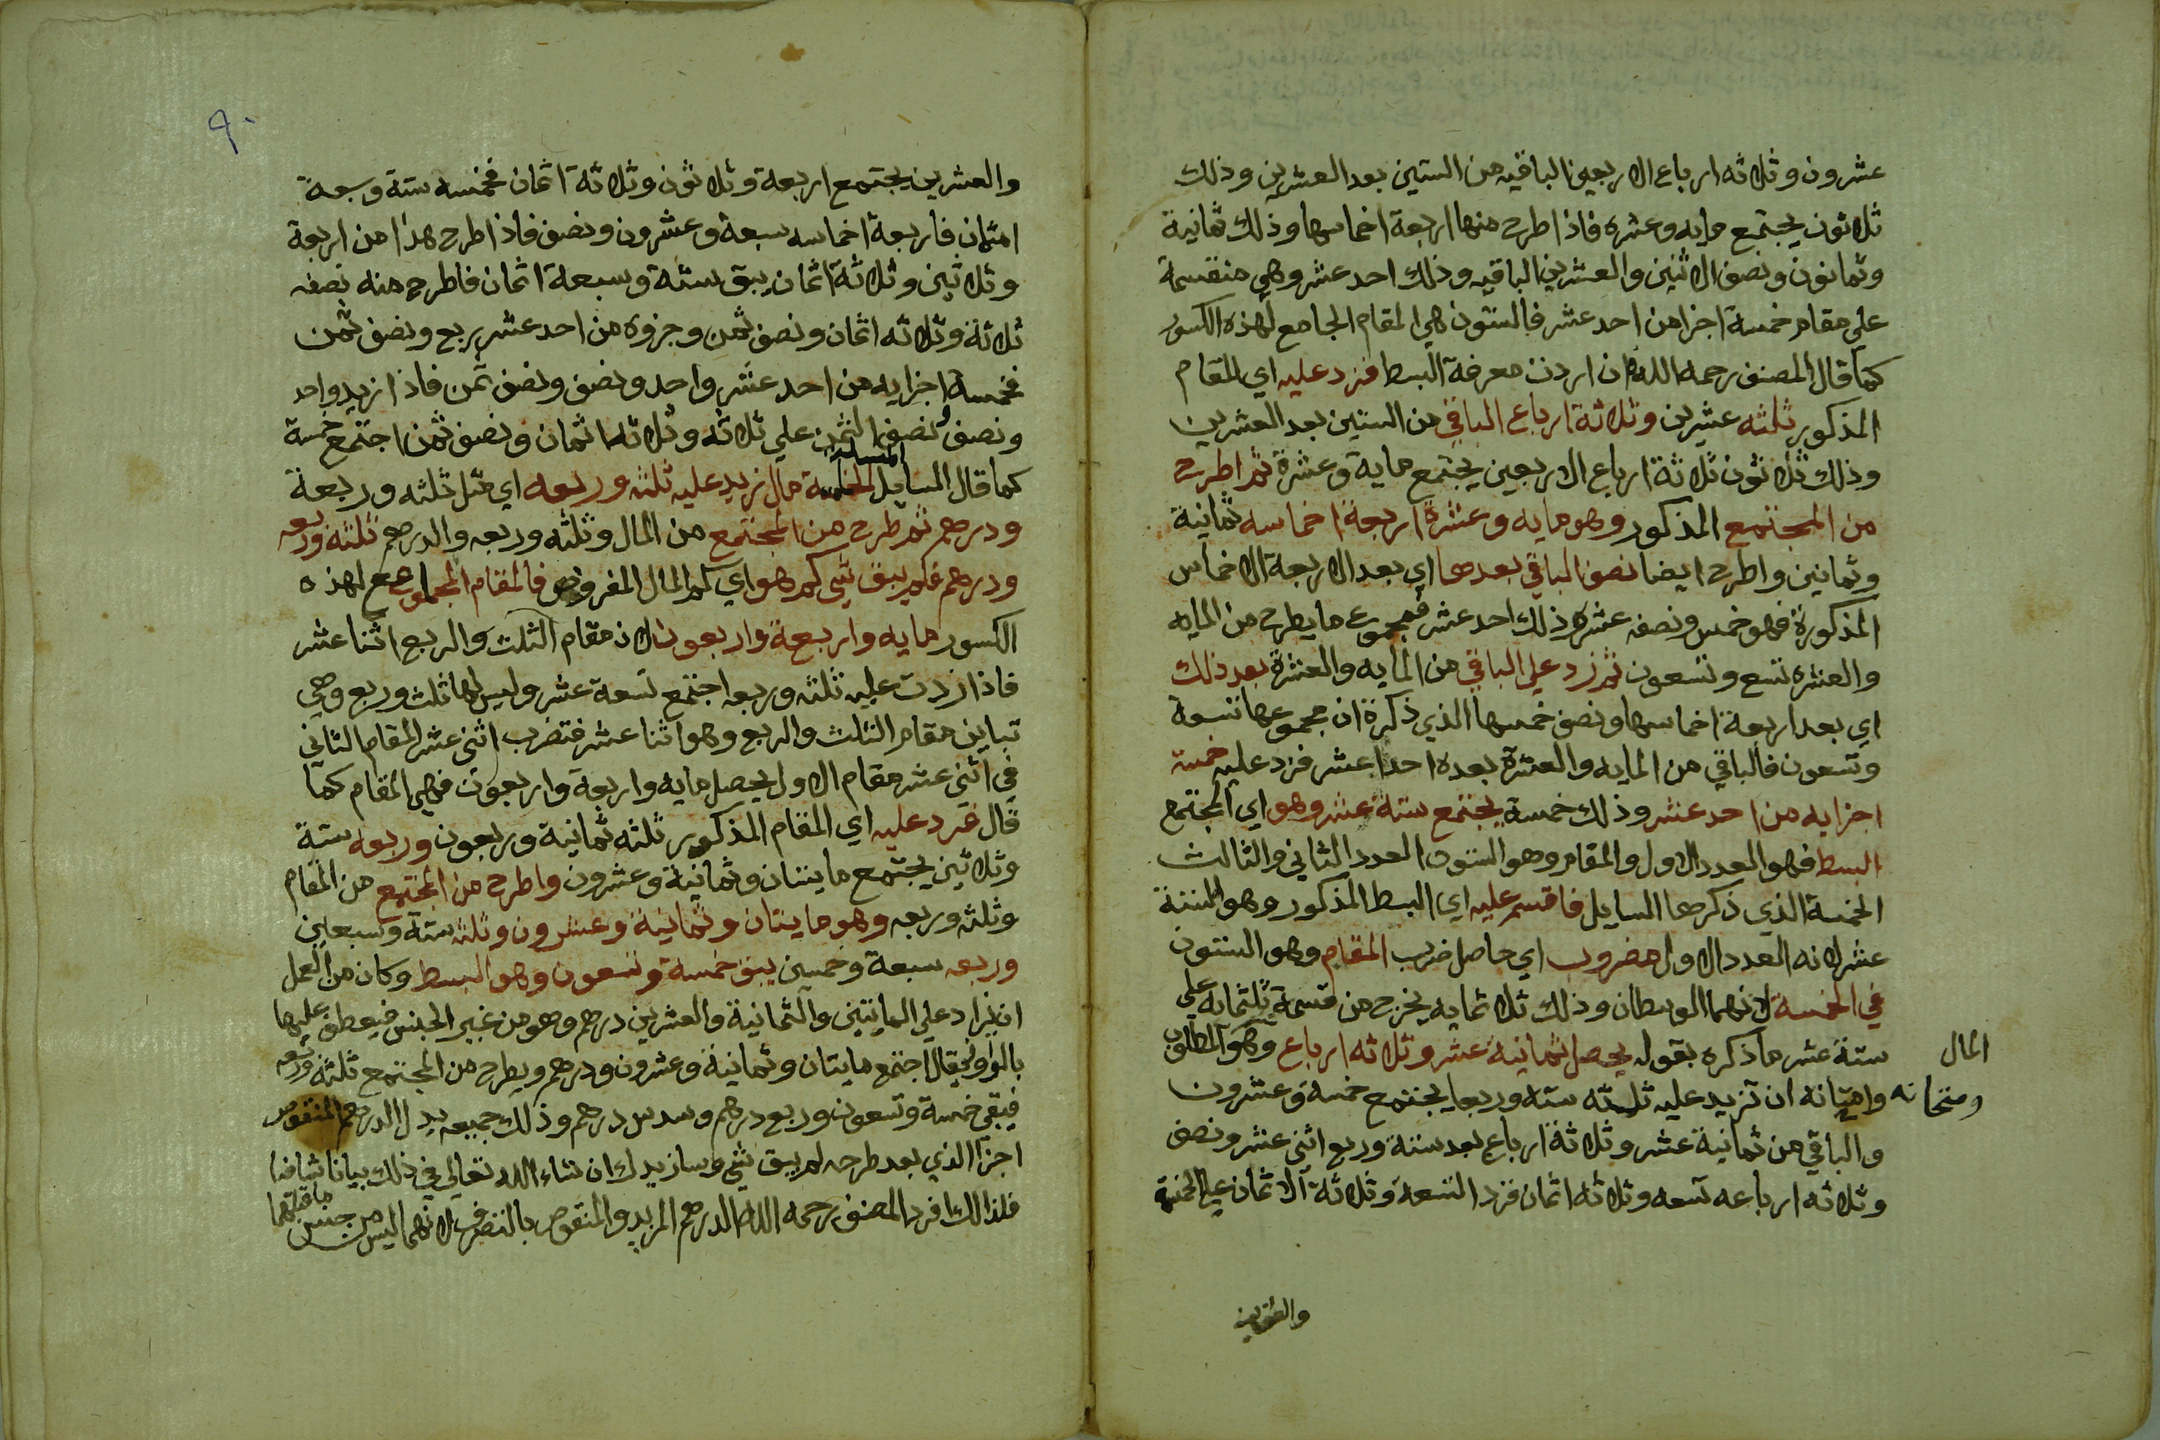 عشرون وثلاثه ارباع الاربعين الباقيه من الستين بعد العشرين وذلك
ثلاثون يجتمع مايه وعشره فاذا طرح منها اربعة اخماسها وذلك ثمانية
وثمانون ونصف الاثنين والعشرين الباقيه وذلك احد عشر وهي منقسمة
علي مقام خمسة اجزا من احد عشر فالستون هي المقام الجامع لهذه الكسور
كما قال المصنف رحمه الله ان اردت معرفة البسط فزد عليه اي المقام
المذكور ثلثه عشرين وثلاثة ارباع الباقي من الستين بعد العشرين
وذلك ثلاثون ثلاثة ارباع الاربعين يجتمع ماية وعشرة ثم اطرح
من المجتمع المذكور وهو مايه وعشرة اربعة اخماسه ثمانية
وثمانين واطرح ايضا نصف الباقي بعدها اي بعد الاربعة الاخماس
المذكورة فهو خمس ونصف عشره وذلك احد عشر فمجموع ما يطرح من المايه
والعشره تسع وتسعون ثم زد علي الباقي من المايه والعشرة بعد ذلك
اي بعد اربعة اخماسها ونصف خمسها الذي ذكرة ان مجموعها تسعة
وتسعون فالباقي من المايه والعشرة بعده احدا عشر فزد عليه خمسة
اجزايه من احد عشر وذلك خمسة يجتمع ستة عشر وهو اي المجتمع
البسط فهو العدد الاول والمقام وهو الستون العدد الثاني والثالث
الخمسة الذي ذكرها السايل فاقسم عليه اي البسط المذكور وهو الستة
عشر لانه العدد الاول مضروب اي حاصل ضرب المقام وهو الستون
في الخمسة لانهما الوسطان وذلك ثلاثمايه يخرج من قسمة ثلثمايه علي
ستة عشر ما ذكره بقوله يحصل ثمانية عشر وثلاثه ارباع وهو المطلوب
المال
وامتحانه ان تزيد عليه ثلثه سته وربعا يجتمع خمسة وعشرون
وامتحانه
والباقي من ثمانية عشر وثلاثة ارباع بعد ستة وربع اثني عشر ونصف
وثلاثه ارباعه تسعه وثلاثه اثمان فزد التسعه وثلاثة الاثمان علي الخمسة
والعشرين
٩٠
والعشرين يجتمع اربعة وثلاثون وثلاثة اثمان فخمسه ستة وسبعة
اثمان فاربعة اخماسه سبعة وعشرون ونصف فاذا طرح هذا من اربعة
وثلاثين وثلاثة اثمان يبقى ستة وسبعة اثمان فاطرح منه نصفه
ثلاثة وثلاثه اثمان ونصف ثمن وجزوه من احد عشر ربع ونصف ثمن
فخمسة اجزايه من احد عشر واحد ونصف ونصف ثمن فاذا ازيد واحد
ونصف ونصف الثمن علي ثلاثه وثلاثه اثمان ونصف ثمن اجتمع خمسة
كما قال السايل المسئلة الخامسة مال زيد عليه ثلثه وربعه اي مثل ثلثه وربعة
ودرهم ثم طرح من المجتمع من المال وثلثه وربعه والدرهم ثلثه وربعه
ودرهم فلم يبق شي كم هو اي كم المال المفروض فالمقام الجامع لهذه
الكسور مايه واربعة واربعون لان مقام الثلث والربع اثنا عشر
فاذا زدت عليه ثلثه وربعه اجتمع تسعة عشر وليس لها ثلث وربع وهي
تباين مقام الثلث والربع وهو اثنا عشر فتضرب اثني عشر المقام الثاني
في اثني عشر مقام الاول يحصل مايه واربعة واربعون فهي المقام كما
قال فزد عليه اي المقام المذكور ثلثه ثمانية وربعون وربعه ستة
وثلاثين يجتمع مايتان وثمانية وعشرون واطرح من المجتمع من المقام
وثلثه وربعه وهو مايتان وثمانية وعشرون وثلثه ستة وسبعين
وربعه سبعة وخمسين يبق خمسة وتسعون وهو البسط وكان من العمل
ان يزاد علي المايتين والثمانية والعشرين درهم وهو من غير الجنس فيعطف عليها
بالواو فيقال اجتمع مايتان وثمانية وعشرون ودرهم ويطرح من المجتمع ثلثه وربعه
فيبقي خمسة وتسعون وربع درهم وسدس درهم وذلك جميعه بدل الدرهم المنقوص
اجزا الذي بعد طرحه لم يبق شي وسازيدك ان شاء الله تعالي في ذلك بيانا شافيا
فلذالك افرد المصنف رحمه الله الدرهم المزيد والمنقوص بالتصرف لانهما ليس من جنس ما قبلهما